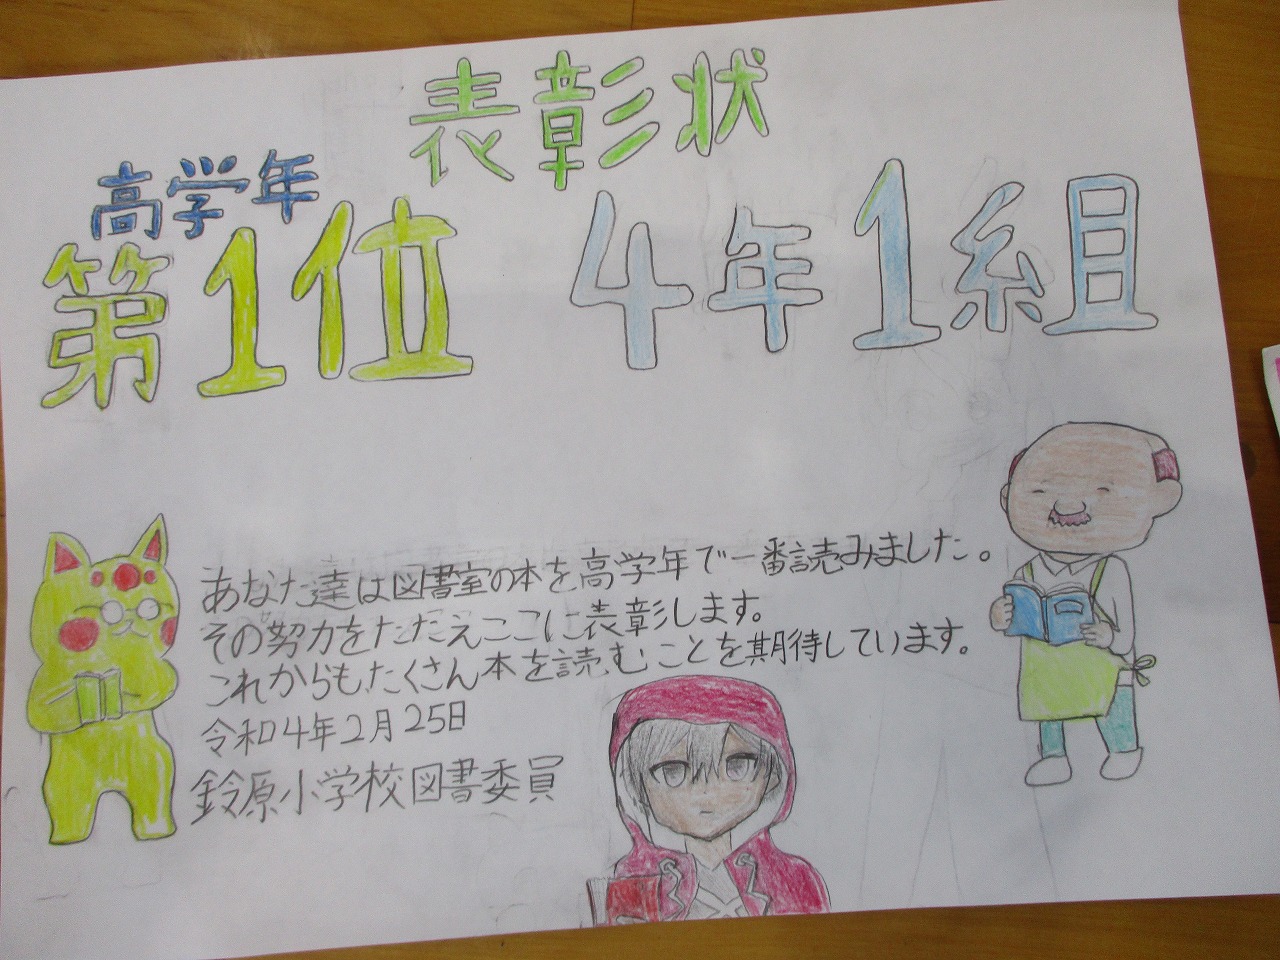 表彰状
高学年
第1位 4年1組
あなた達は図書室の本を高学年で一番読みました。
その努力をたたえここに表彰します。
これからもたくさん本を読むことを期待しています。
令和4年2月25日
鈴原小学校図書委員